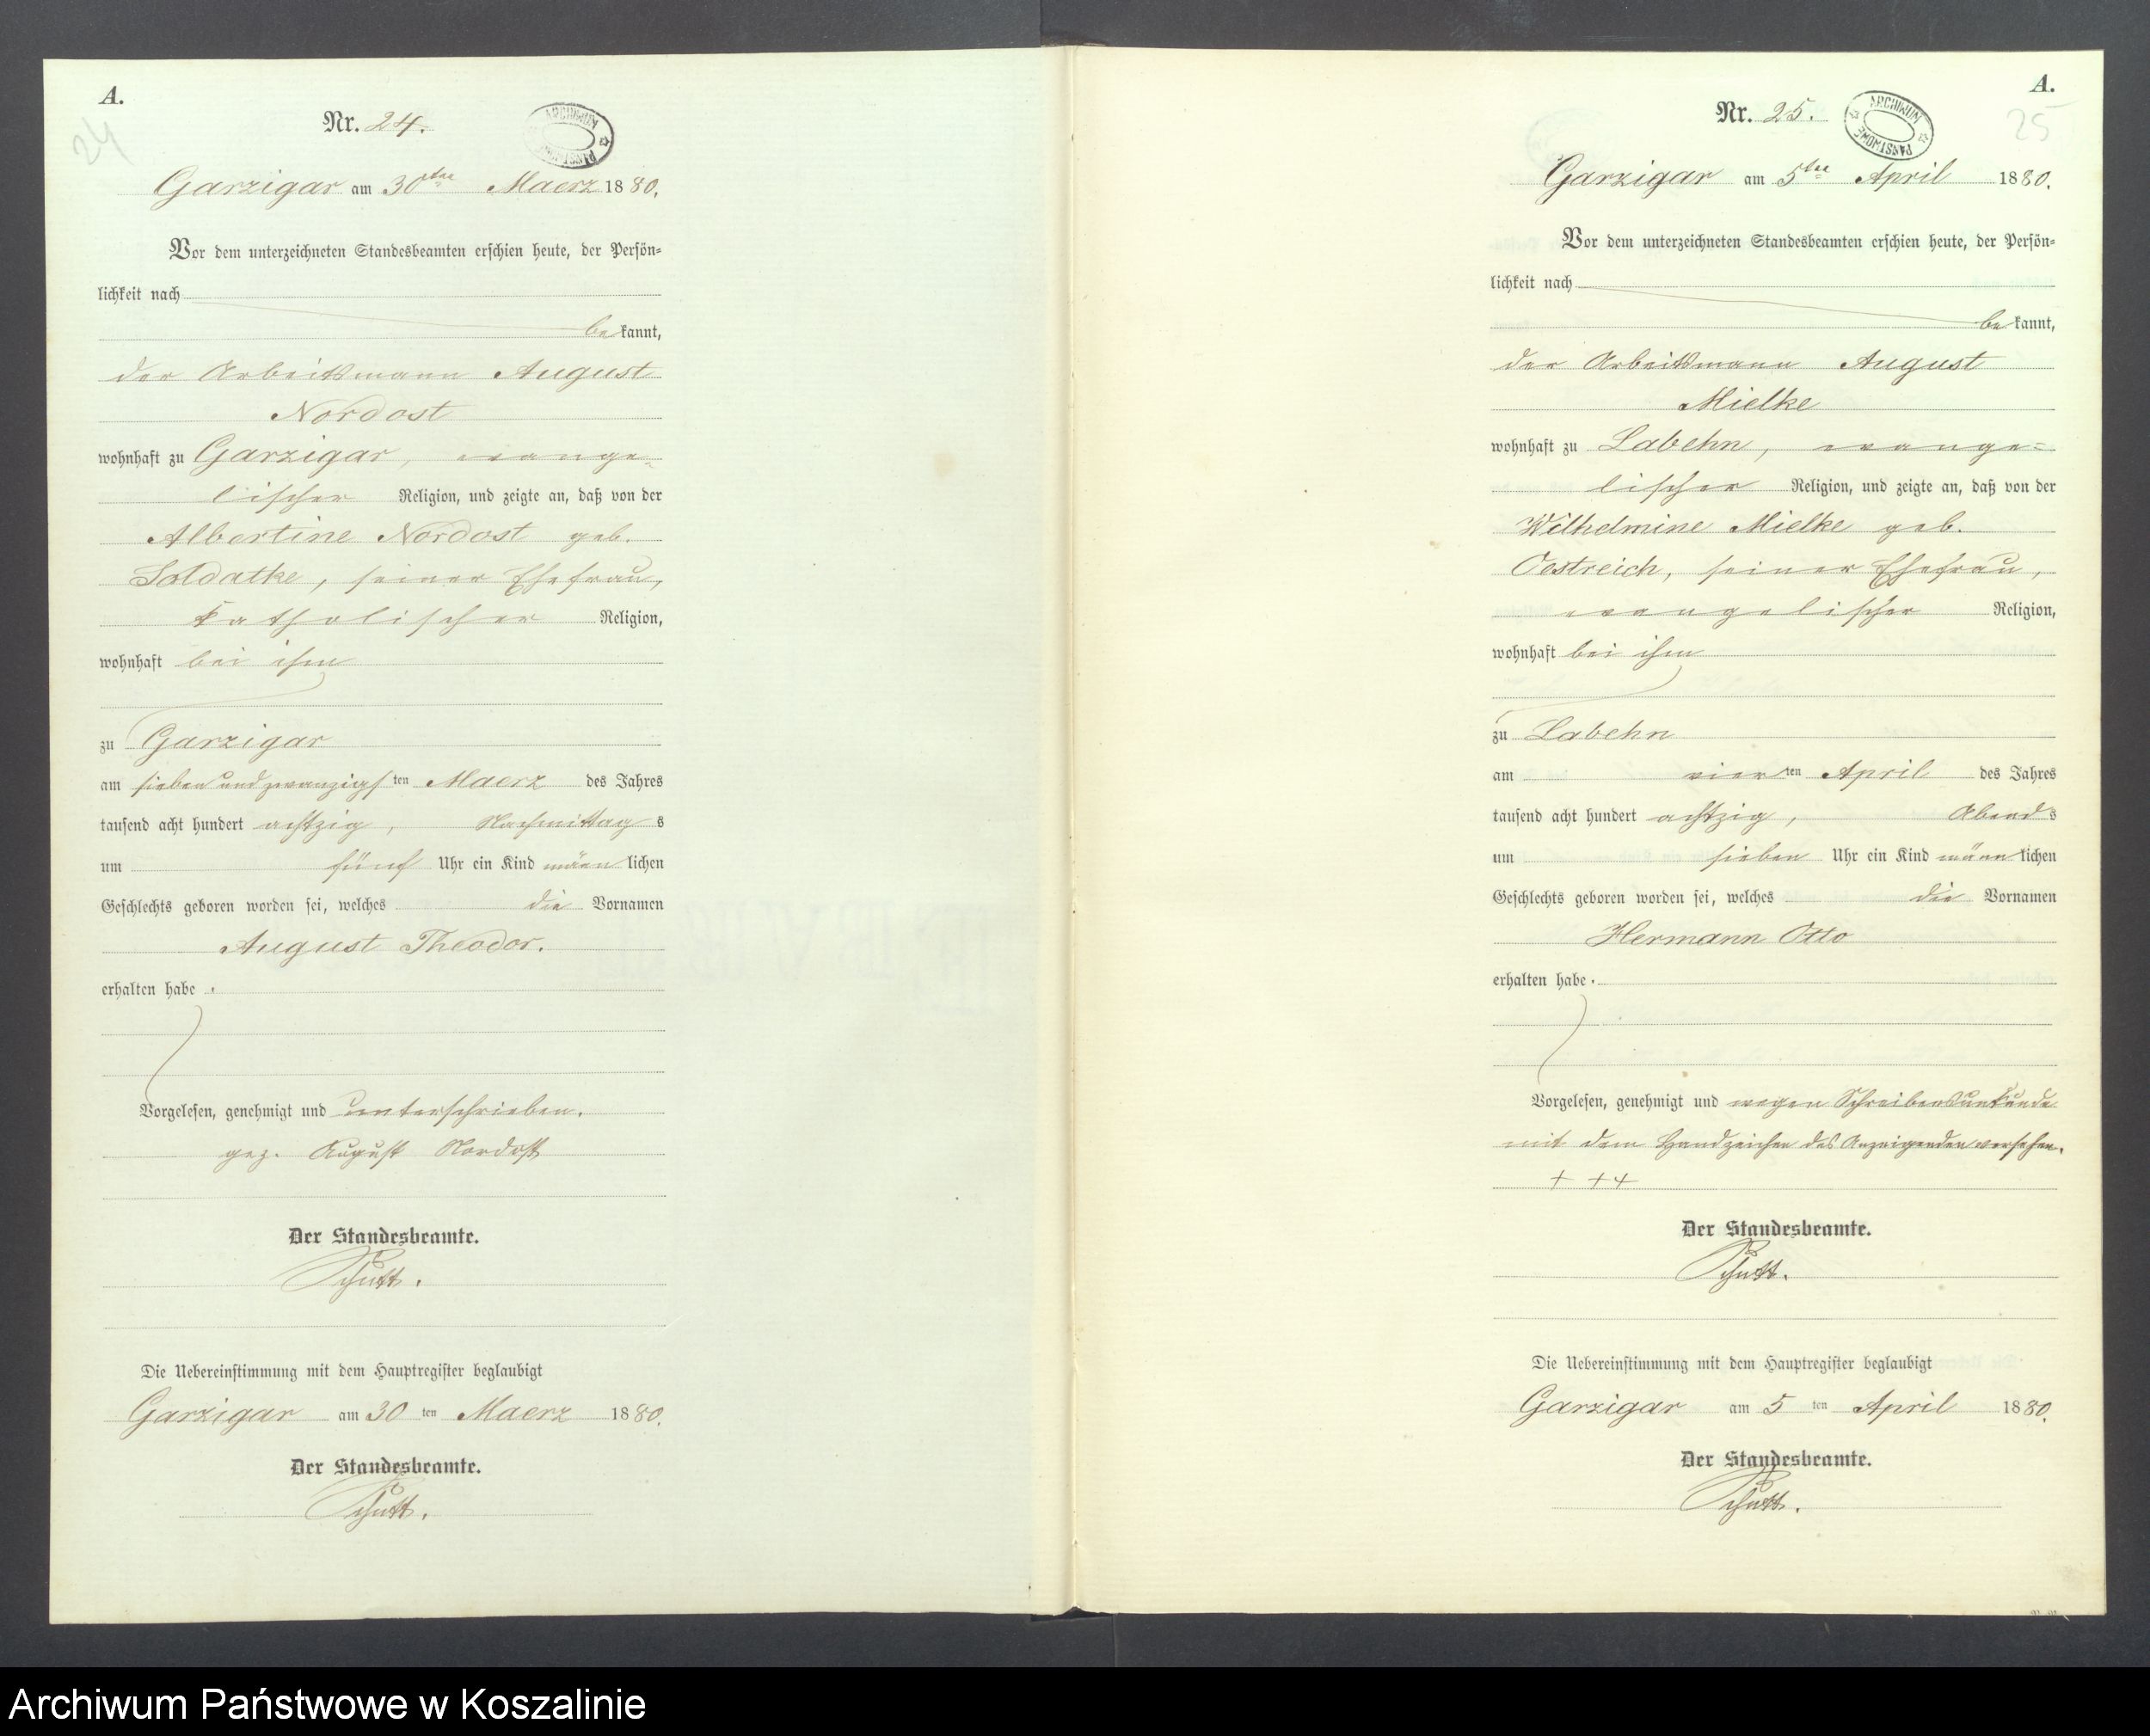 A.
24
Nr. 24.
ARCHIWUM PAŃSTWOWE
Garzigar am 30ten Maerz 1880.
Vor dem unterzeichneten Standesbeamten erschien heute, der Persön-
lichkeit nach
bekannt,
der Arbeitsmann August
Nordost
wohnhaft zu Garzigar, evange-
lischer Religion, und zeigte an, daß von der
Albertine Nordost geb.
Soldatke, seiner Ehefrau,
katholischer Religion,
wohnhaft bei ihm
zu Garzigar
am siebenundzwanzigsten Maerz des Jahres
tausend acht hundert achtzig, Nachmittags
um fünf Uhr ein Kind männlichen
Geschlechts geboren worden sei, welches die Vornamen
August Theodor.
erhalten habe.
Vorgelesen, genehmigt und unterschrieben.
gez. August Nordost
Der Standesbeamte.
Schutt.
Die Uebereinstimmung mit dem Hauptregister beglaubigt
Garzigar am 30ten Maerz 1880.
Der Standesbeamte.
Schutt.
A.
25
Nr. 25.
ARCHIWUM PAŃSTWOWE
Garzigar am 5ten April 1880.
Vor dem unterzeichneten Standesbeamten erschien heute, der Persön-
lichkeit nach
bekannt,
der Arbeitsmann August
Mielke
wohnhaft zu Labehn, evange-
lischer Religion, und zeigte an, daß von der
Wilhelmine Mielke geb.
Oestreich, seiner Ehefrau,
evangelischer Religion,
wohnhaft bei ihm
zu Labehn
am vierten April des Jahres
tausend acht hundert achtzig, Abends
um sieben Uhr ein Kind männlichen
Geschlechts geboren worden sei, welches die Vornamen
Hermann Otto
erhalten habe.
Vorgelesen, genehmigt und wegen Schreibensunkunde
mit dem Handzeichen des Anzeigenden versehen.
+ + +
Der Standesbeamte.
Schutt.
Die Uebereinstimmung mit dem Hauptregister beglaubigt
Garzigar am 5ten April 1880.
Der Standesbeamte.
Schutt.
Archiwum Państwowe w Koszalinie